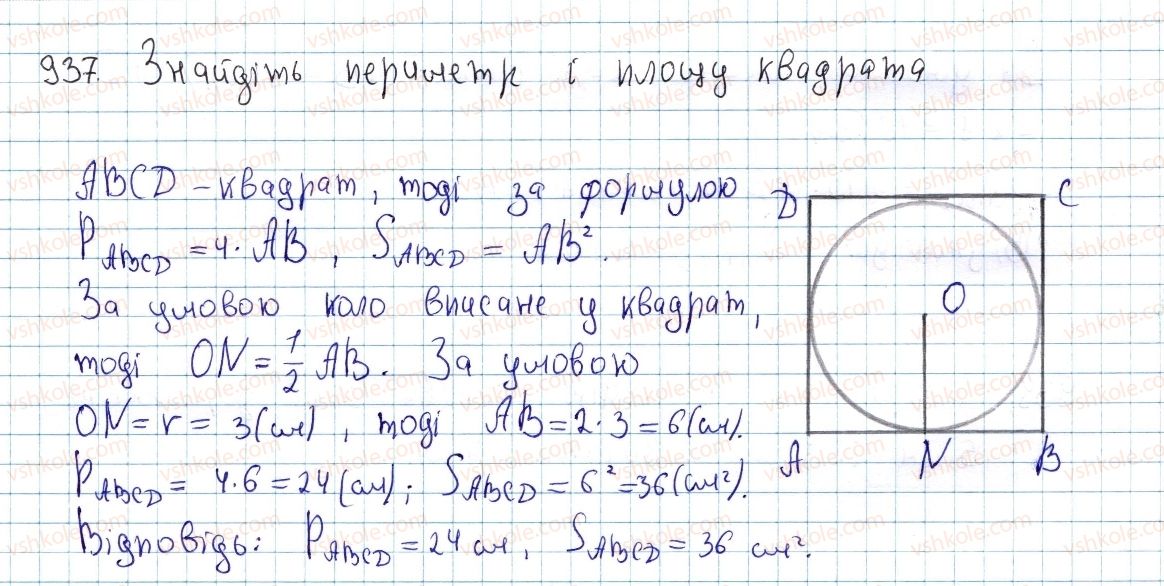 937. Знайдіть периметр і площу квадрата
ABCD – квадрат, тоді за формулою
P_ABCD = 4 · AB, S_ABCD = AB².
За умовою коло вписане у квадрат,
тоді ON = 1/2 AB. За умовою
ON = r = 3 (см), тоді AB = 2 · 3 = 6 (см).
P_ABCD = 4 · 6 = 24 (см); S_ABCD = 6² = 36 (см²).
Відповідь: P_ABCD = 24 см, S_ABCD = 36 см².
D C
O
A N B
vshkole.com